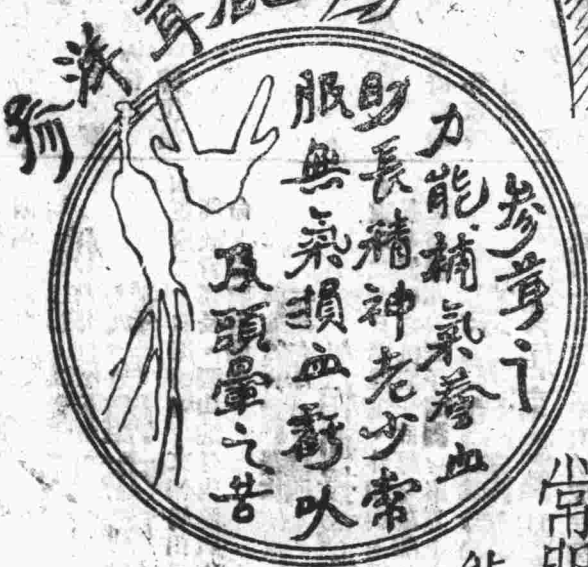 參茸之
力能補氣養血
助長精神老少常
服無氣損血虧以
及頭暈之苦
茸
海
狗
常